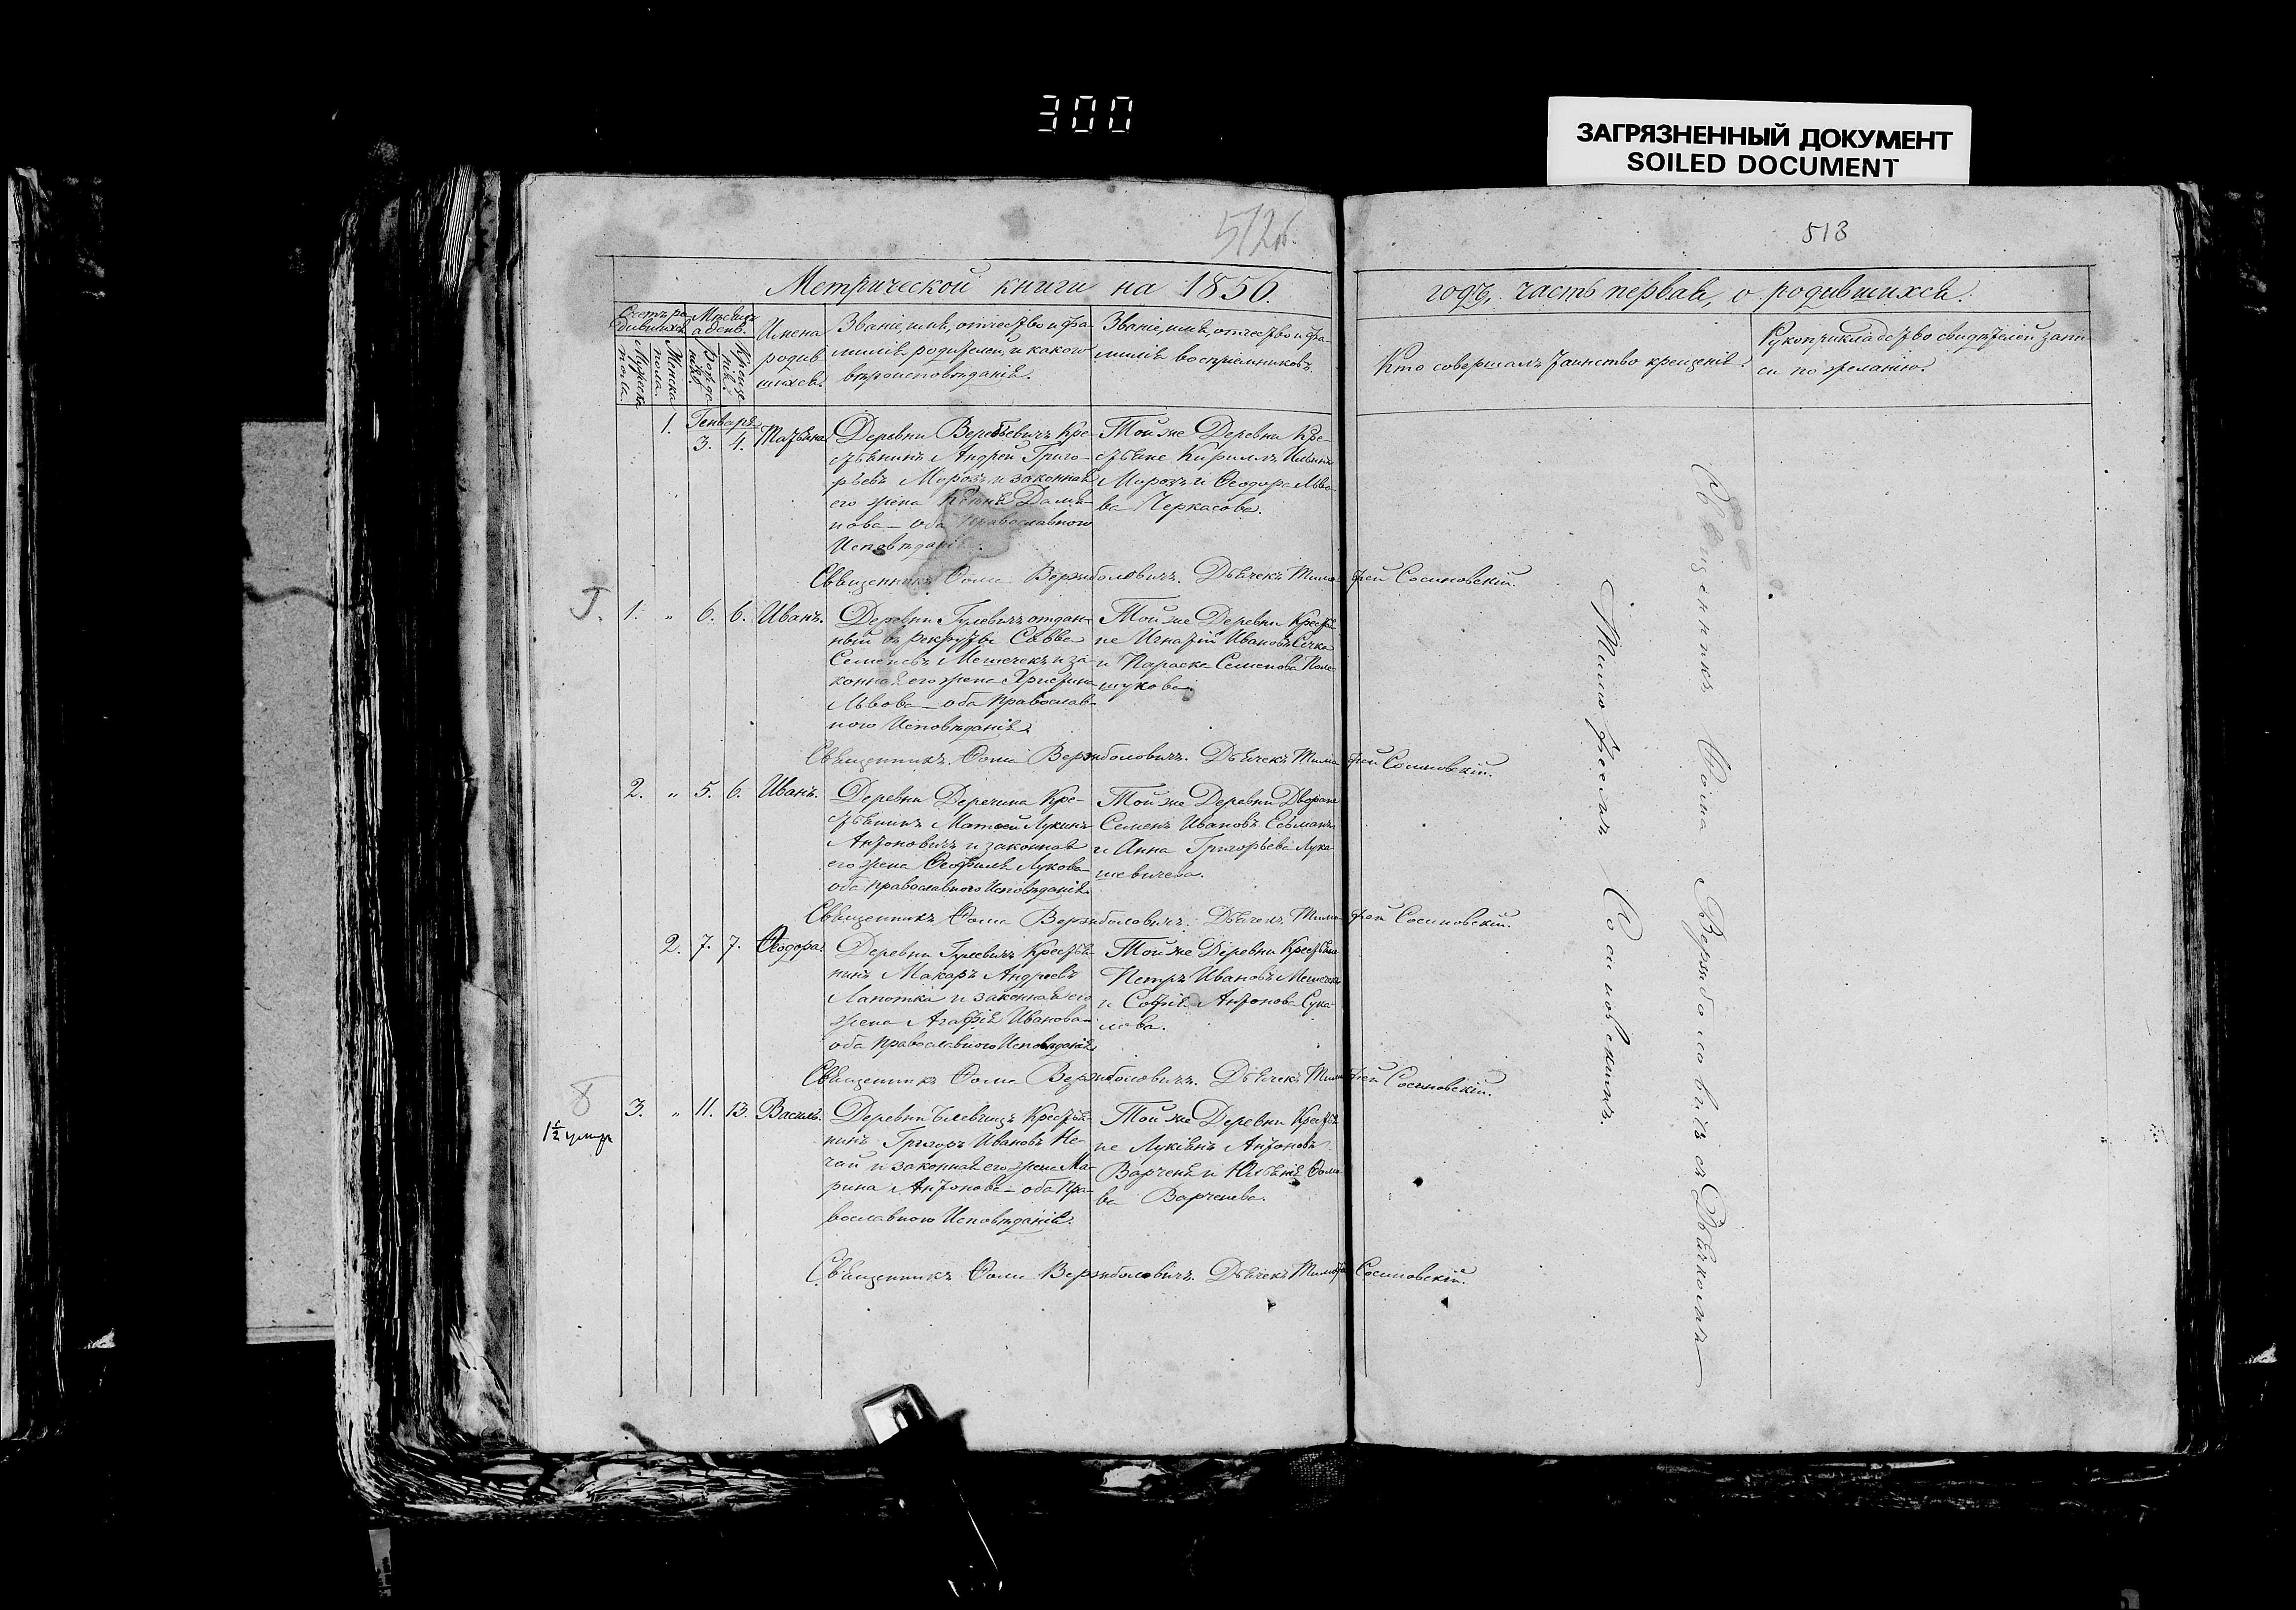 300
ЗАГРЯЗНЕННЫЙ ДОКУМЕНТ
SOILED DOCUMENT
513
Метрической книги на 1856.
годъ, часть первая, о родившихся.
Счетъ ро-
дившихся
Мужска
пола.
Женска
пола.
Мѣсяцъ
и день.
Рожде
нія
Креще
нія
Имена
родив
шихся.
Званіе, имя, отчество и фа-
милія родителей, и какого
вѣроисповѣданія.
Званіе, имя, отчество и фа-
милія воспріемниковъ.
Кто совершалъ таинство крещенія.
Рукоприкладство свидѣтелей запи-
си по желанію.
Генваря
1. 3. 4. Татіяна
Деревни Веребьевичъ Кре-
стьянинъ Андрей Григо-
рьевъ Морозъ и законная
его жена Дамья-
нова – оба православнаго
Исповѣданія.
Той же Деревни Кре-
стьяне Кириллъ
Морозъ и Ѳеодора Льво-
ва Черкасова.
Священникъ Ѳома Вержболовичъ. Дьячекъ Тимофей Сосиновскій.
1. " 6. 6. Иванъ.
Деревни Гулевичъ отдан-
ный въ рекруты Савва
Семеновъ Мешечекъ и за-
конная его жена Христина
Львова – оба православ-
ного Исповѣданія.
Той же Деревни Крестья
не Игнатій Ивановъ
и Параска Семенова Поле-
щукова.
Священникъ Ѳома Вержболовичъ. Дьячекъ Тимофей Сосиновскій.
2. " 5. 6. Иванъ.
Деревни Деречина Кре-
стьянинъ Матѳей Лукинъ
Антоновичъ и законная
его жена Ѳеофиля Лукова
оба православнаго Исповѣданія.
Той же Деревни Дворяне
Семенъ Ивановъ Есьманъ
и Анна Григорьева Лука
шевичева.
Священникъ Ѳома Вержболовичъ. Дьячекъ Тимофей Сосиновскій.
2. 7. 7. Ѳеодора.
Деревни Гулевичъ Крестья-
нинъ Макаръ Андреевъ
Лапотка и законная его
жена Агафія Иванова
оба православнаго Исповѣданія
Той же Деревни Крестьяне
Петръ Ивановъ Мешечекъ
и Софія Антонова Сука
лова.
Священникъ Ѳома Вержболовичъ. Дьячекъ Тимофей Сосиновскій.
3. " 11. 13. Василь.
Деревни Крестья-
нинъ Григоръ Ивановъ Не-
чай и законная его жена Ма-
рина Антонова – оба Пра-
вославного Исповѣданія.
Той же Деревни Крестья
не Лукіянъ Антоновъ
Варченя и Ѳоми
ва Варченева.
Священникъ Ѳома Вержболовичъ. Дьячекъ Тимофей Сосиновскій.
Священникъ Ѳома Вержболовичъ съ Дьячкомъ
Тимофеемъ Сосиновскимъ.